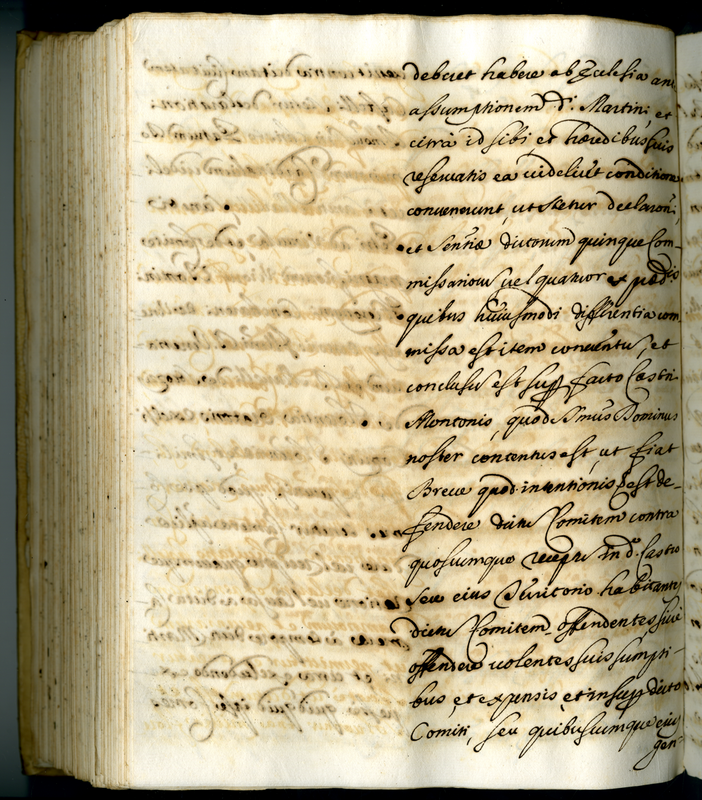 deberet habere ab Ecclesia an-
assumptionem d.ⁱ Martini, et
citrà id sibi, et hæredibus suis
reseruatis ea uidelicet conditione
conuenerunt, ut stetur declaroni,
et Senñæ dictorum quinque Com-
missarioru uel quatuor ex præd.is
quibus huiusmodi differentia com-
missa est item conuentu, et
conclusu est sup facto Castri
Montonis, quod S.mus Dominus
noster contentus est, ut fiat
Breue quod intentionis est de-
fendere dictu Comitem contra
quoscumque receptu in d.º Castro
seu eius Territorio habitantes
dictu Comitem offendentes siue
offendere uolentes suis sumpti-
bus, et expensis, et insup dicto
Comiti, seu quibuscumque eius
gen-